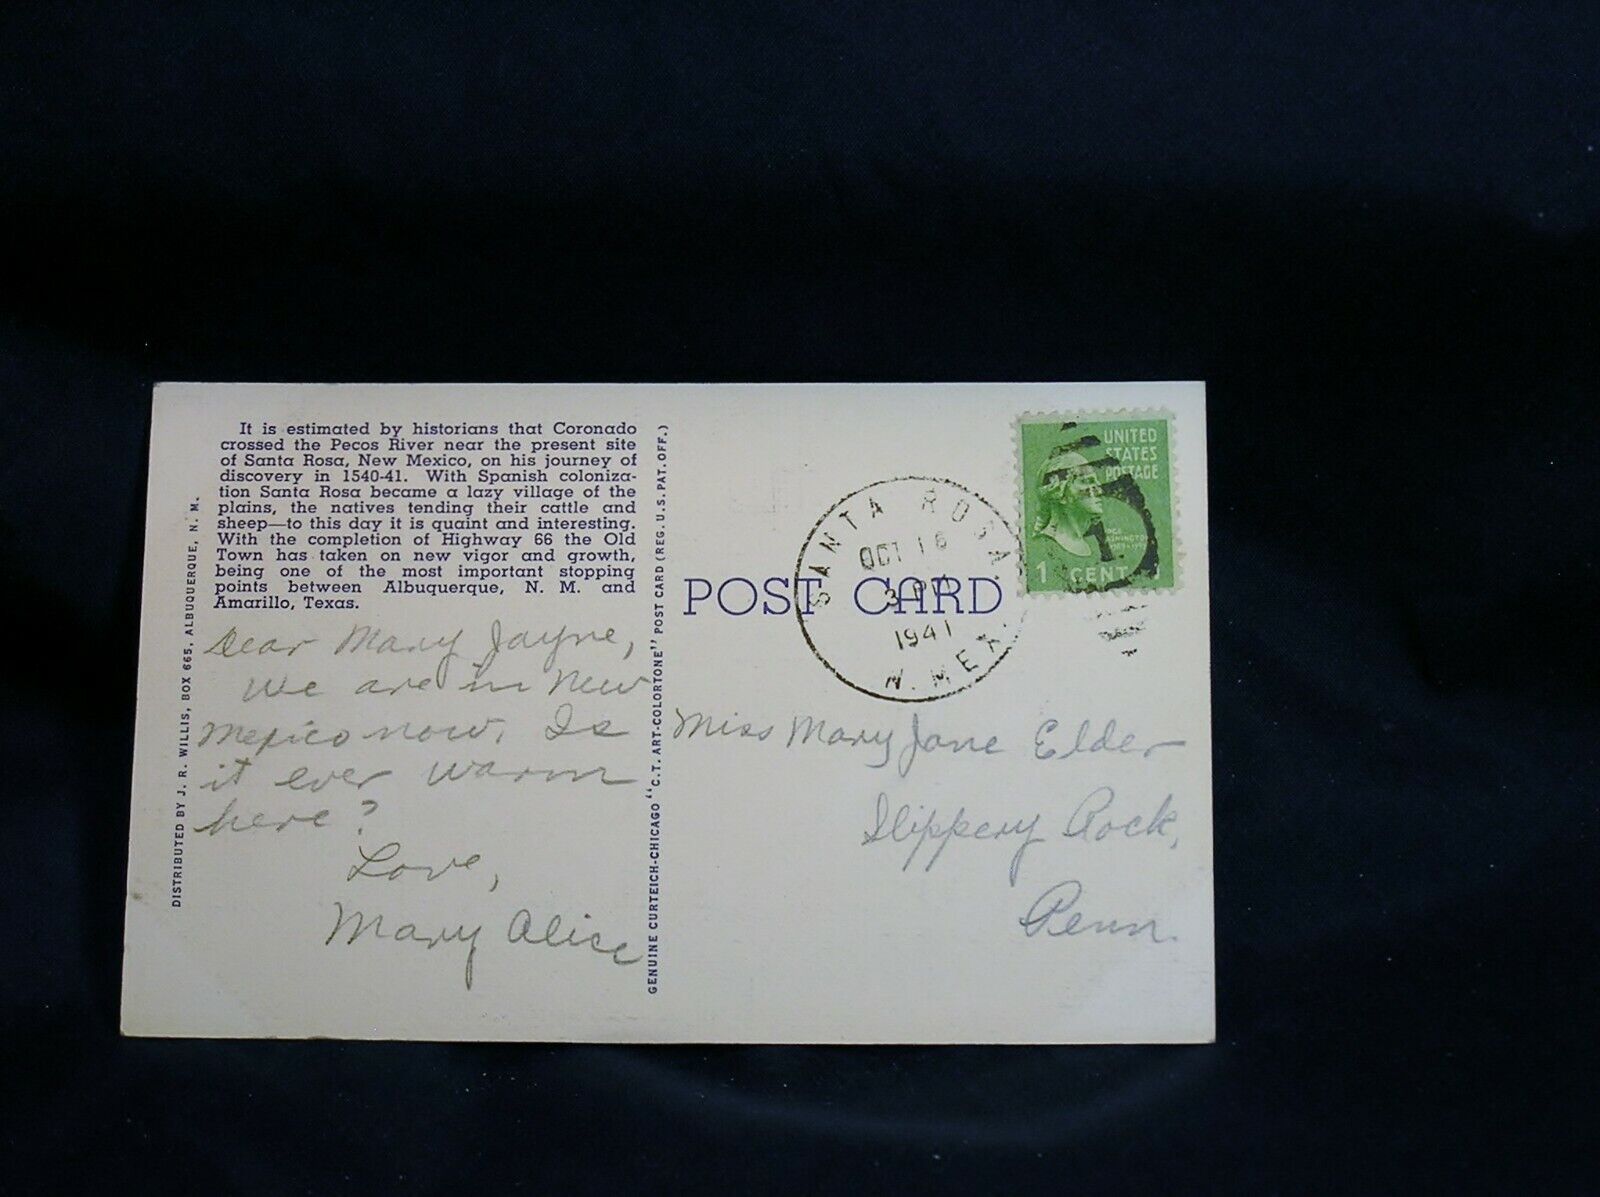 It is estimated by historians that Coronado
crossed the Pecos River near the present site
of Santa Rosa, New Mexico, on his journey of
discovery in 1540-41. With Spanish coloniza-
tion Santa Rosa became a lazy village of the
plains, the natives tending their cattle and
sheep—to this day it is quaint and interesting.
With the completion of Highway 66 the Old
Town has taken on new vigor and growth,
being one of the most important stopping
points between Albuquerque, N. M. and
Amarillo, Texas.
Dear Mary Jayne,
We are in New
Mexico now. Is
it ever warm
here?
Love,
Mary Alice
DISTRIBUTED BY J. R. WILLIS, BOX 665, ALBUQUERQUE, N. M.
GENUINE CURTEICH-CHICAGO "C.T. ART-COLORTONE" POST CARD (REG. U.S. PAT. OFF.)
POST CARD
SANTA ROSA
OCT 16
3 PM
1941
N. MEX.
UNITED
STATES
POSTAGE
1 CENT
Miss Mary Jane Elder
Slippery Rock,
Penn.